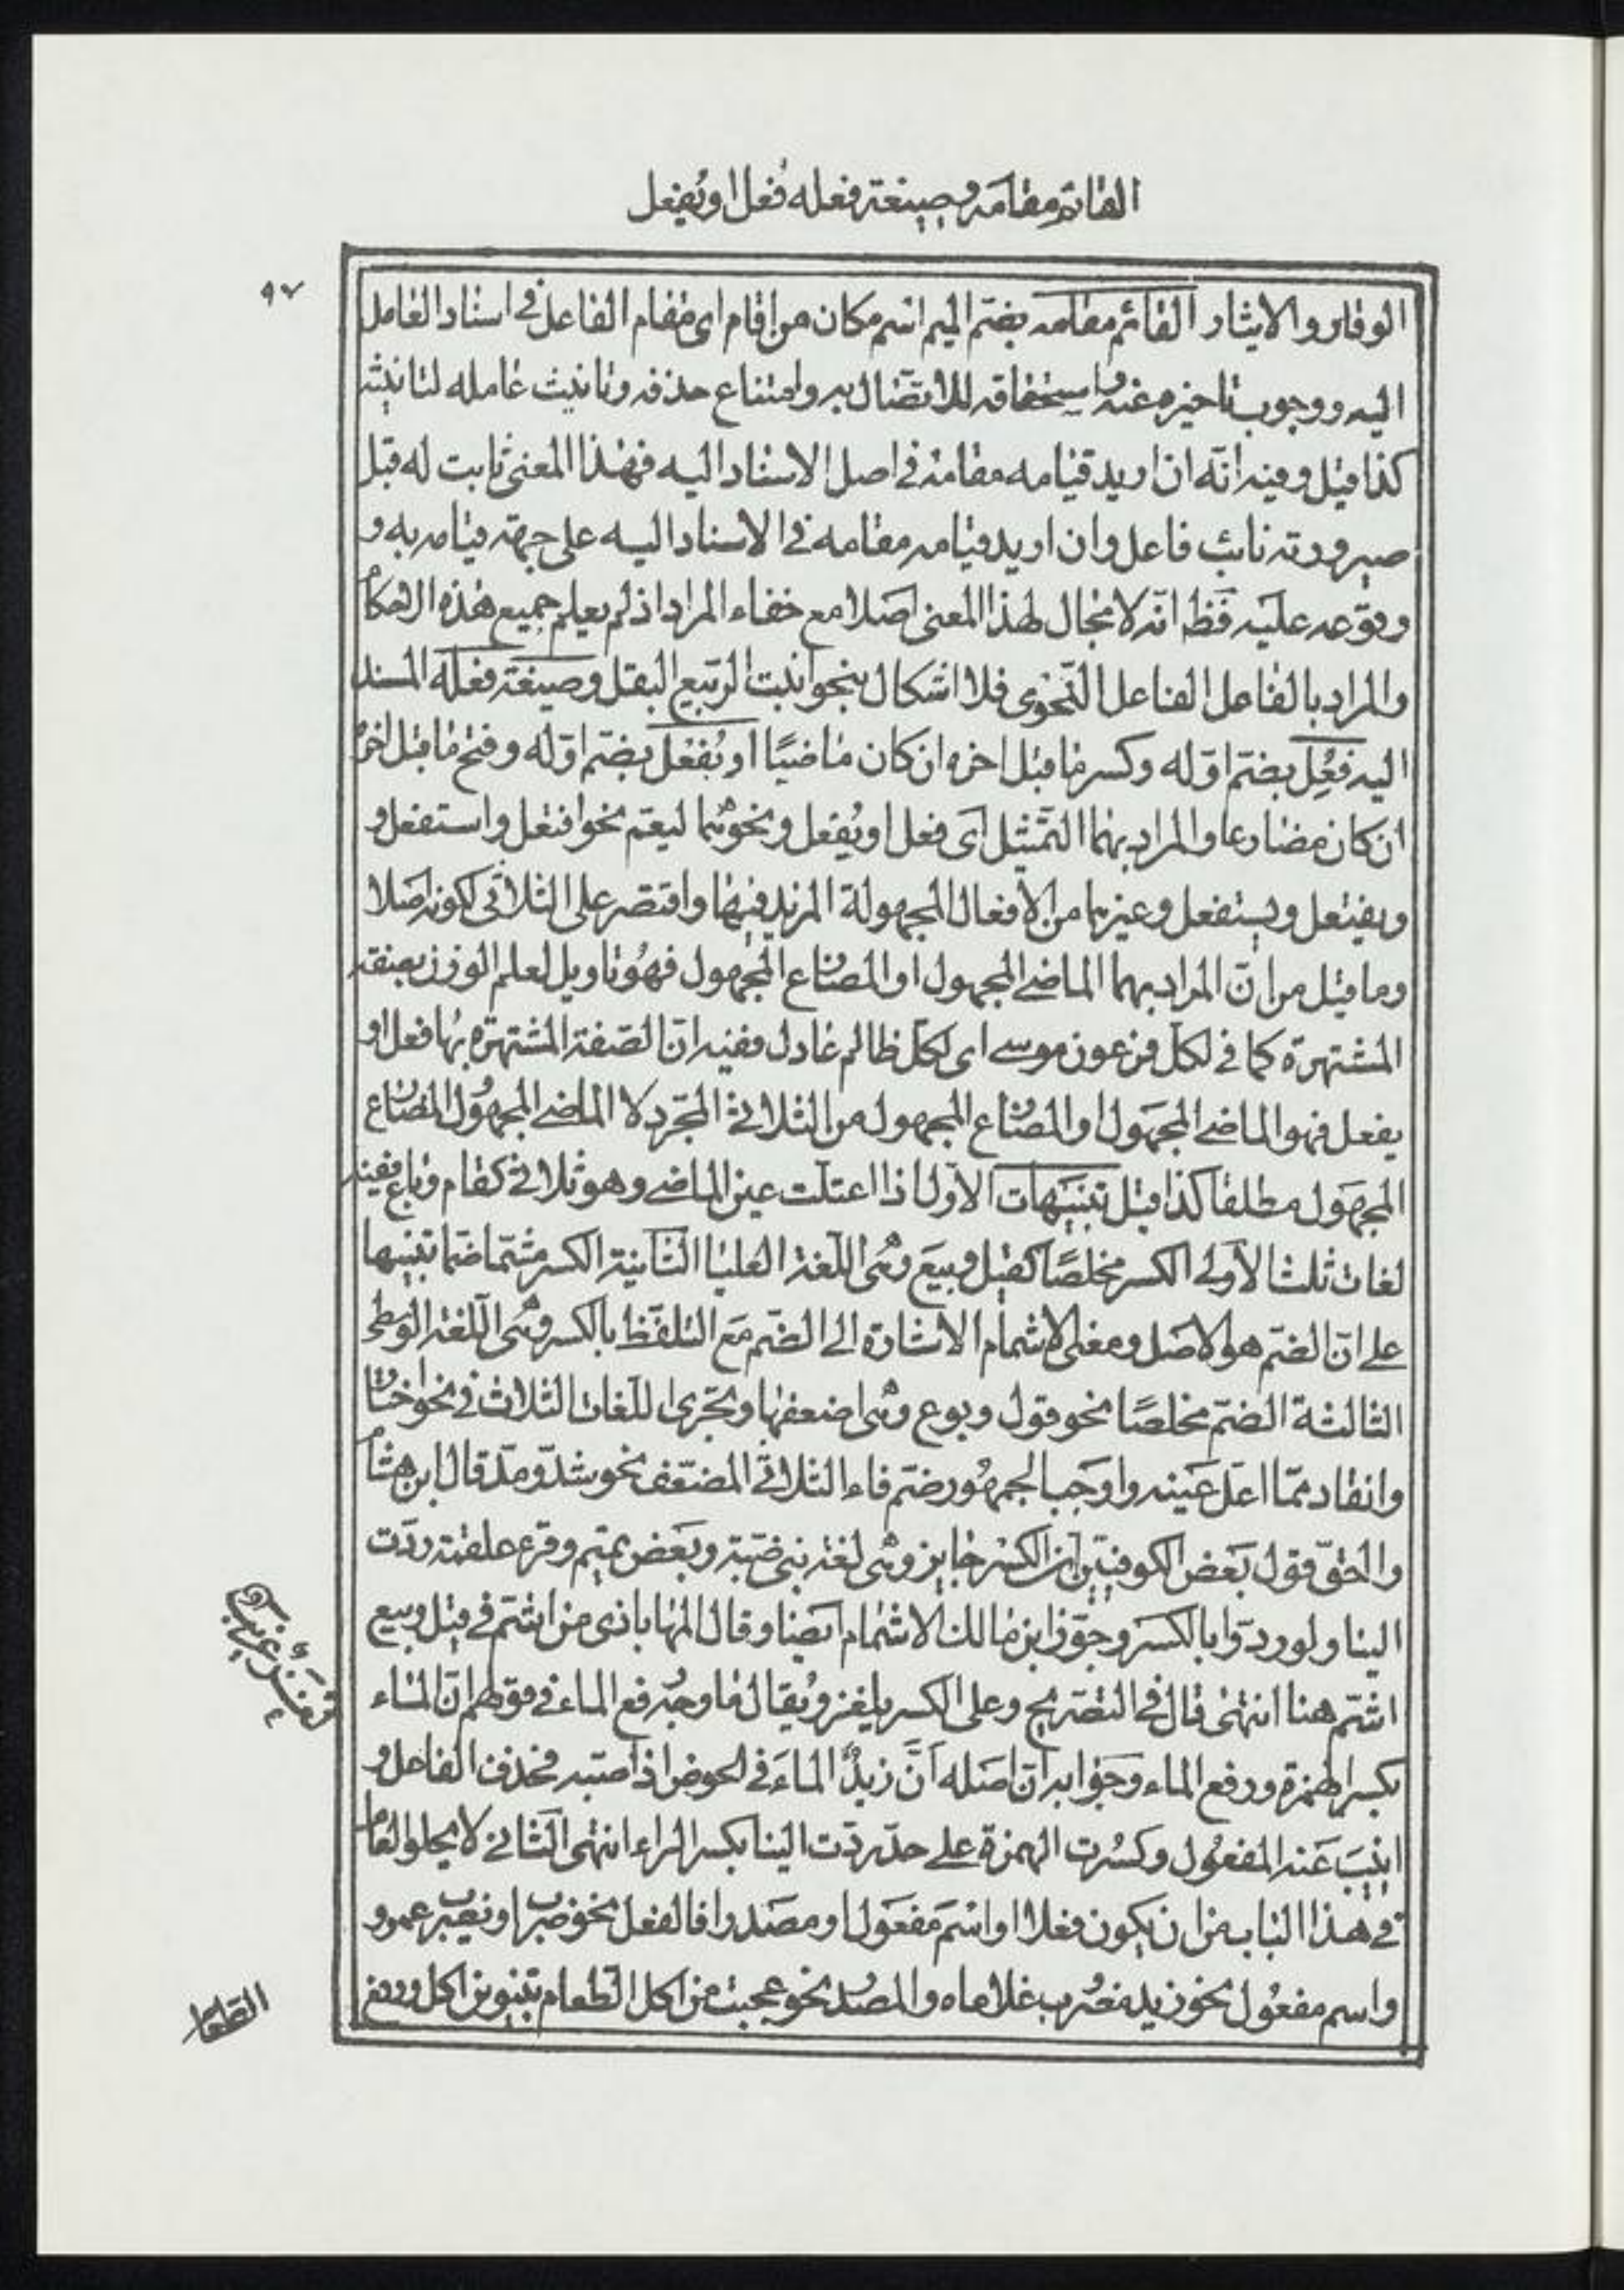 القائم مقامه وصيغة فعله فُعل او يُفعل
٩٧
الوفاء والايثار القائم مقامه بضم الميم اسم مكان من اقام اى مقام الفاعل فى اسناد العامل
اليه ووجوب تاخيره عنه واستحقاقه للاتصال به وامتناع حذفه وتانيث عامله لتانيثه
كذا قيل وفيه انّه ان اريد قيامه مقامه فى اصل الاسناد اليه فهذا المعنى ثابت له قبل
صيرورته نائب فاعل وان اريد قيامه مقامه فى الاسناد اليه على جهة قيامه به و
وقوعه عليه فظ انّه لا مجال لهذا المعنى اصلا مع خفاء المراد اذ لم يعلم جميع هذه الاحكام
والمراد بالفاعل الفاعل النّحوى فلا اشكال بنحو انبت الربيع البقل وصيغة فعله المسند
اليه فُعِل بضم اوّله وكسر ما قبل اخره ان كان ماضيًا او يُفعَل بضم اوّله وفتح ما قبل اخره
ان كان مضارعا والمراد بهما التّمثيل اى فعل او يُفعل ونحوهما ليعم نحو افتعل واستفعل و
ويفتعل ويستفعل وغيرهما من الافعال المجهولة المزيد فيها واقتصر على الثلاثى لكونه اصلا
وما قيل من انّ المراد بهما الماضى المجهول او المضارع المجهول فهو تاويل لعلم الوزن بصفته
المشتهرة كما فى لكل فرعون موسى اى لكل ظالم عادل ففيه انّ الصّفة المشتهرة بها فعل او
يفعل فهو الماضى المجهول او المضارع المجهول من الثلاثى المجرّد لا الماضى المجهول المضارع
المجهول مطلقا كذا قيل تنبيهات الاوّل اذا اعتلت عين الماضى وهو ثلاثى كقام وباع ففيه
لغات ثلث الاولى الكسر مخلصًا كقيل وبيع وهى اللّغة العليا الثانية الكسر مشمّا ضمّا تنبيها
على انّ الضّم هو الاصل ومعنى الاشمام الاشارة الى الضّم مع التلفّظ بالكسر وهى اللّغة الوسطى
الثالثة الضّم مخلصًا نحو قول وبوع وهى اضعفها وتجرى اللّغات الثلاث فى نحو اختار
وانقاد ممّا اعل عينه واوجب الجمهور ضم فاء الثلاثى المضعّف نحو شدّ ومدّ قال ابن هشام
والحقّ قول بعض الكوفيّين ان الكسر جايز وهى لغة بنى ضبّة وبعض تميم وقرء علقمة ردّت
الينا ولو ردّوا بالكسر وجوّز ابن مالك الاشمام ايضا وقال المهاباذى من اشمّ فى قيل وبيع
اشمّ هنا انتهى قال فى التصريح وعلى الكسر يلغز ويقال ما وجه رفع الماء فى قولهم انّ الماء
بكسر الهمزة ورفع الماء وجوابه انّ اصله أنَّ زيدٌ الماءَ فى الحوض اذا صبّه فحذف الفاعل و
انيب عنه المفعول وكسرت الهمزة على حدّ ردّت الينا بكسر الراء انتهى الثانى لا يخلو العامل
فى هذا الباب من ان يكون فعلا او اسم مفعول او مصدرا فالفعل نحو ضرب او يضرب عمرو
واسم مفعول نحو زيد مضروب غلاماه والمصدر نحو عجبت من اكل الطعام بتنوين اكل ورفع
الطعام